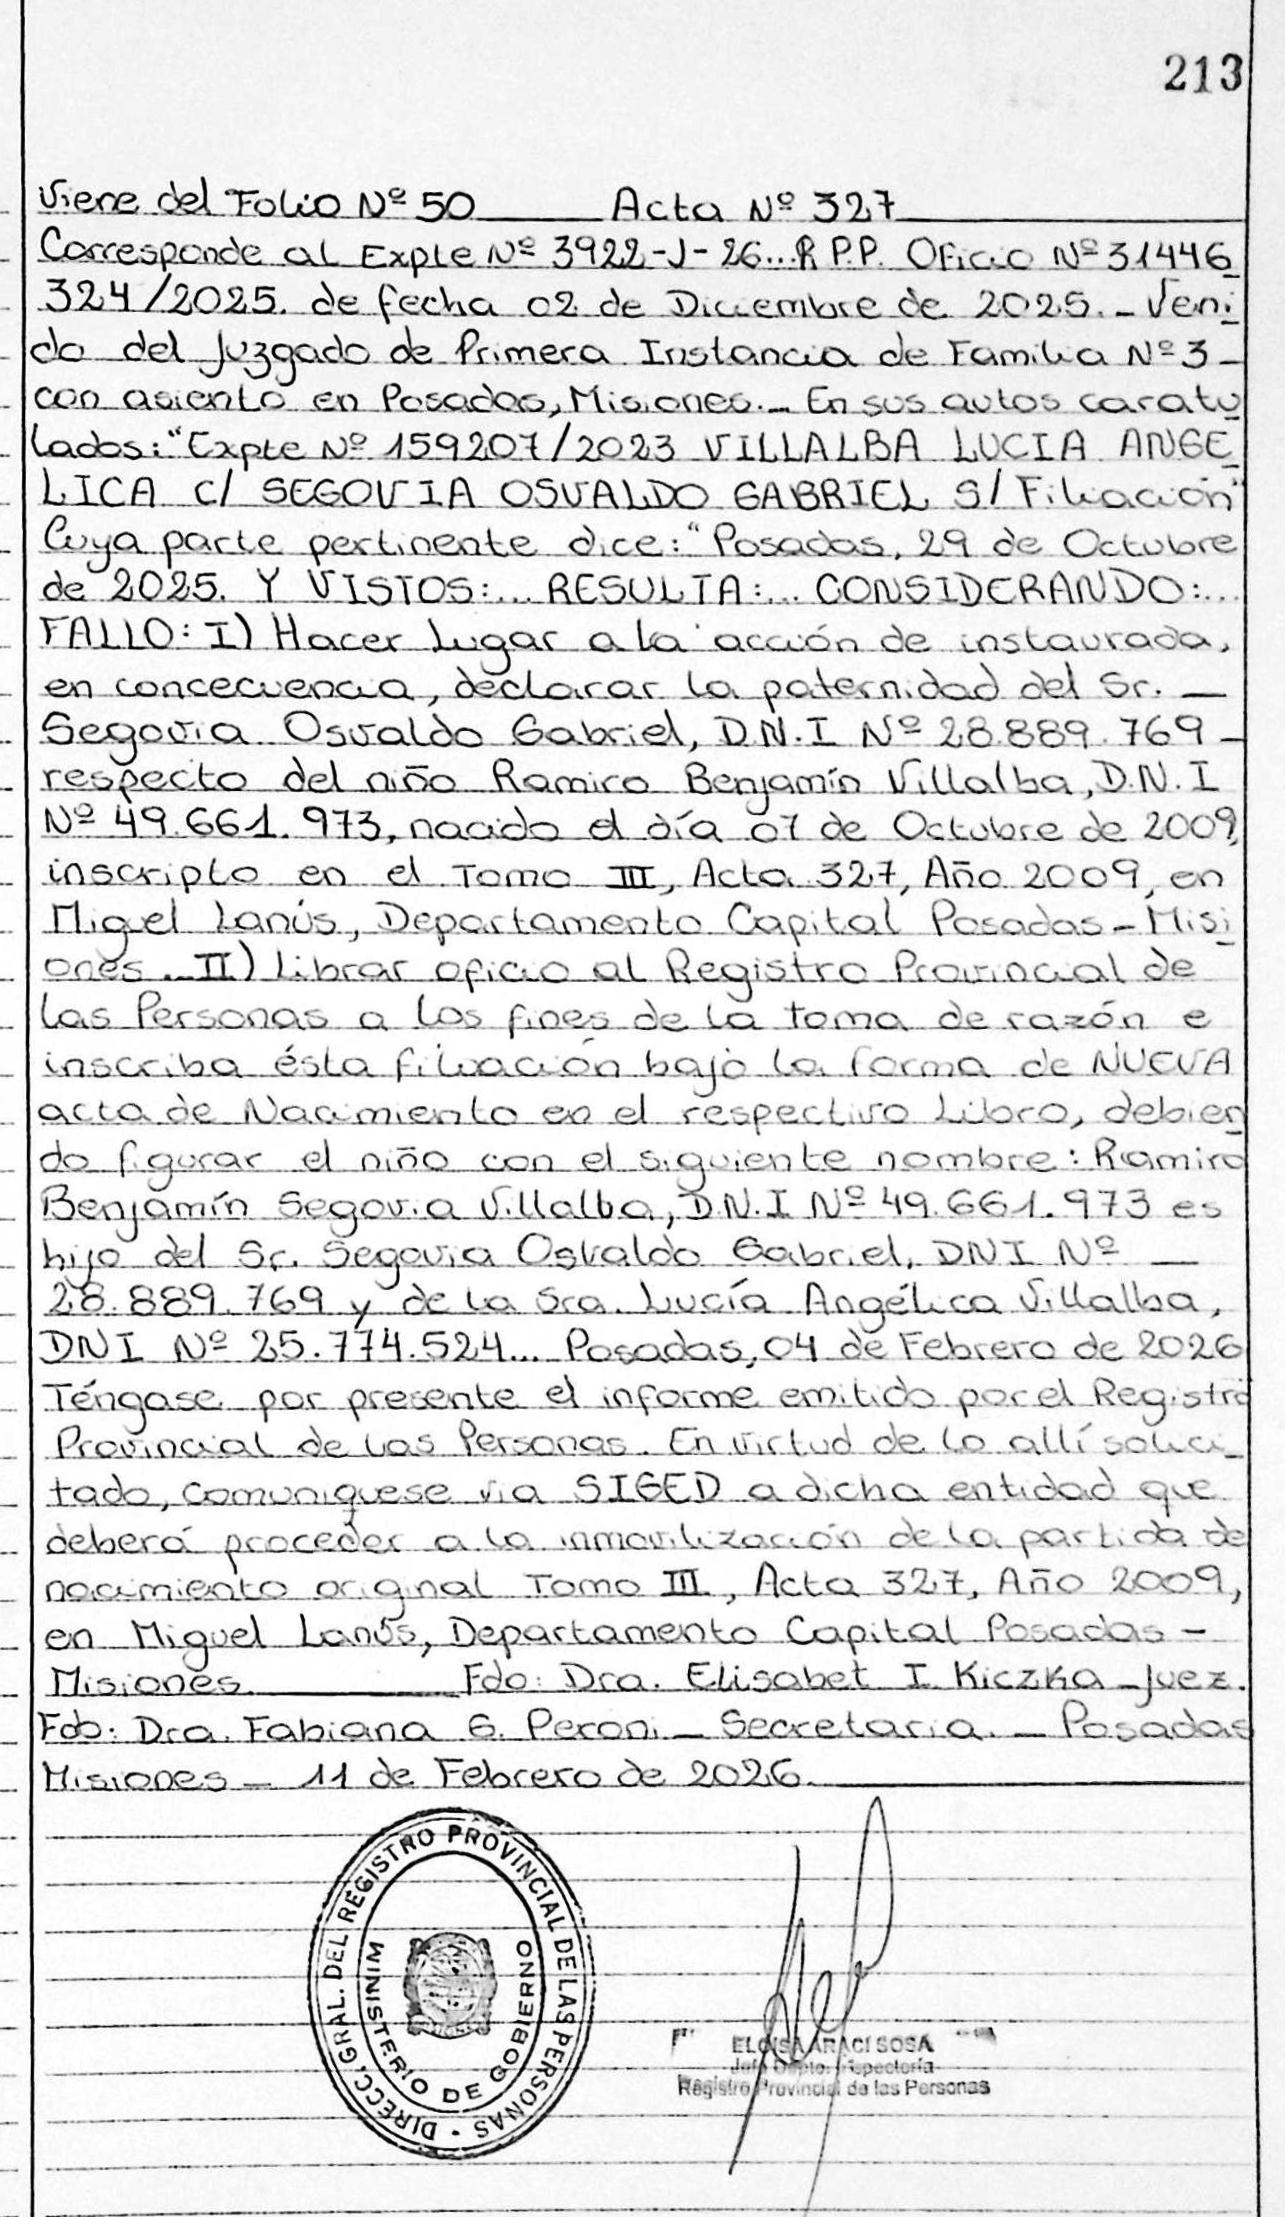 213
Viene del Folio Nº 50 Acta Nº 327
Corresponde al Expte Nº 3922-J-26...R P.P. Oficio Nº 31446
324/2025. de fecha 02 de Diciembre de 2025.- Veni
do del Juzgado de Primera Instancia de Familia Nº 3-
con asiento en Posadas, Misiones.- En sus autos caratu
lados: "Expte Nº 159207/2023 VILLALBA LUCIA ANGE
LICA C/ SEGOVIA OSVALDO GABRIEL S/ Filiación"
Cuya parte pertinente dice: "Posadas, 29 de Octubre
de 2025. Y VISTOS:... RESULTA:... CONSIDERANDO:...
FALLO: I) Hacer Lugar a la acción de instaurada,
en concecuencia, declarar la paternidad del Sr. -
Segovia Osvaldo Gabriel, D.N.I Nº 28.889.769-
respecto del niño Ramiro Benjamín Villalba, D.N.I
Nº 49.661.973, nacido el día 07 de Octubre de 2009,
inscripto en el Tomo III, Acta 327, Año 2009, en
Miguel Lanús, Departamento Capital Posadas - Misi
ones.- II) Librar oficio al Registro Provincial de
las Personas a los fines de la toma de razón e
inscriba ésta filiación bajo la forma de NUEVA
acta de Nacimiento en el respectivo Libro, debien
do figurar el niño con el siguiente nombre: Ramiro
Benjamín Segovia Villalba, D.N.I Nº 49.661.973 es
hijo del Sr. Segovia Osvaldo Gabriel, DNI Nº -
28.889.769 y de la Sra. Lucía Angélica Villalba,
DNI Nº 25.774.524... Posadas, 04 de Febrero de 2026
Téngase por presente el informe emitido por el Registro
Provincial de las Personas. En virtud de lo allí solici-
tado, comuniquese via SIGED a dicha entidad que
deberá proceder a la inmovilización de la partida de
nacimiento original Tomo III, Acta 327, Año 2009,
en Miguel Lanús, Departamento Capital Posadas -
Misiones. Fdo: Dra. Elisabet I. Kiczka - Juez.
Fdo: Dra. Fabiana G. Peroni - Secretaria. - Posadas
Misiones - 11 de Febrero de 2026.
DIRECC. GRAL. DEL REGISTRO PROVINCIAL DE LAS PERSONAS
MINISTERIO DE GOBIERNO
ELOISA ARACI SOSA
Jefa Dpto. Inspectoría
Registro Provincial de las Personas